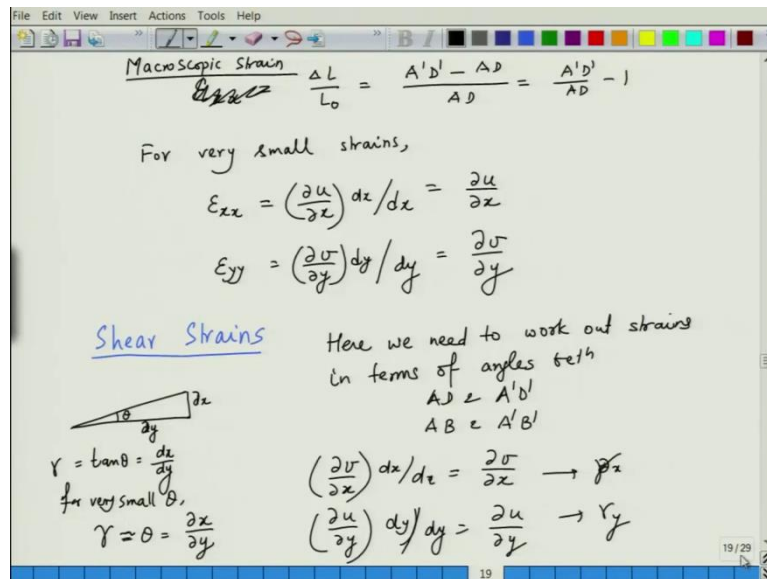 File Edit View Insert Actions Tools Help
Macroscopic Strain ΔL/L₀ = (A'D' − AD)/AD = A'D'/AD − 1
For very small strains,
εxx = (∂u/∂x) dx/dx = ∂u/∂x
εyy = (∂v/∂y) dy/dy = ∂v/∂y
Shear Strains
Here we need to work out strains
in terms of angles betn
AD & A'D'
AB & A'B'
θ ∂x
∂y
γ = tanθ = dx/dy
for very small θ,
γ ≈ θ = ∂x/∂y
(∂v/∂x) dx/dx = ∂v/∂x →
(∂u/∂y) dy/dy = ∂u/∂y → γy
19/29
19